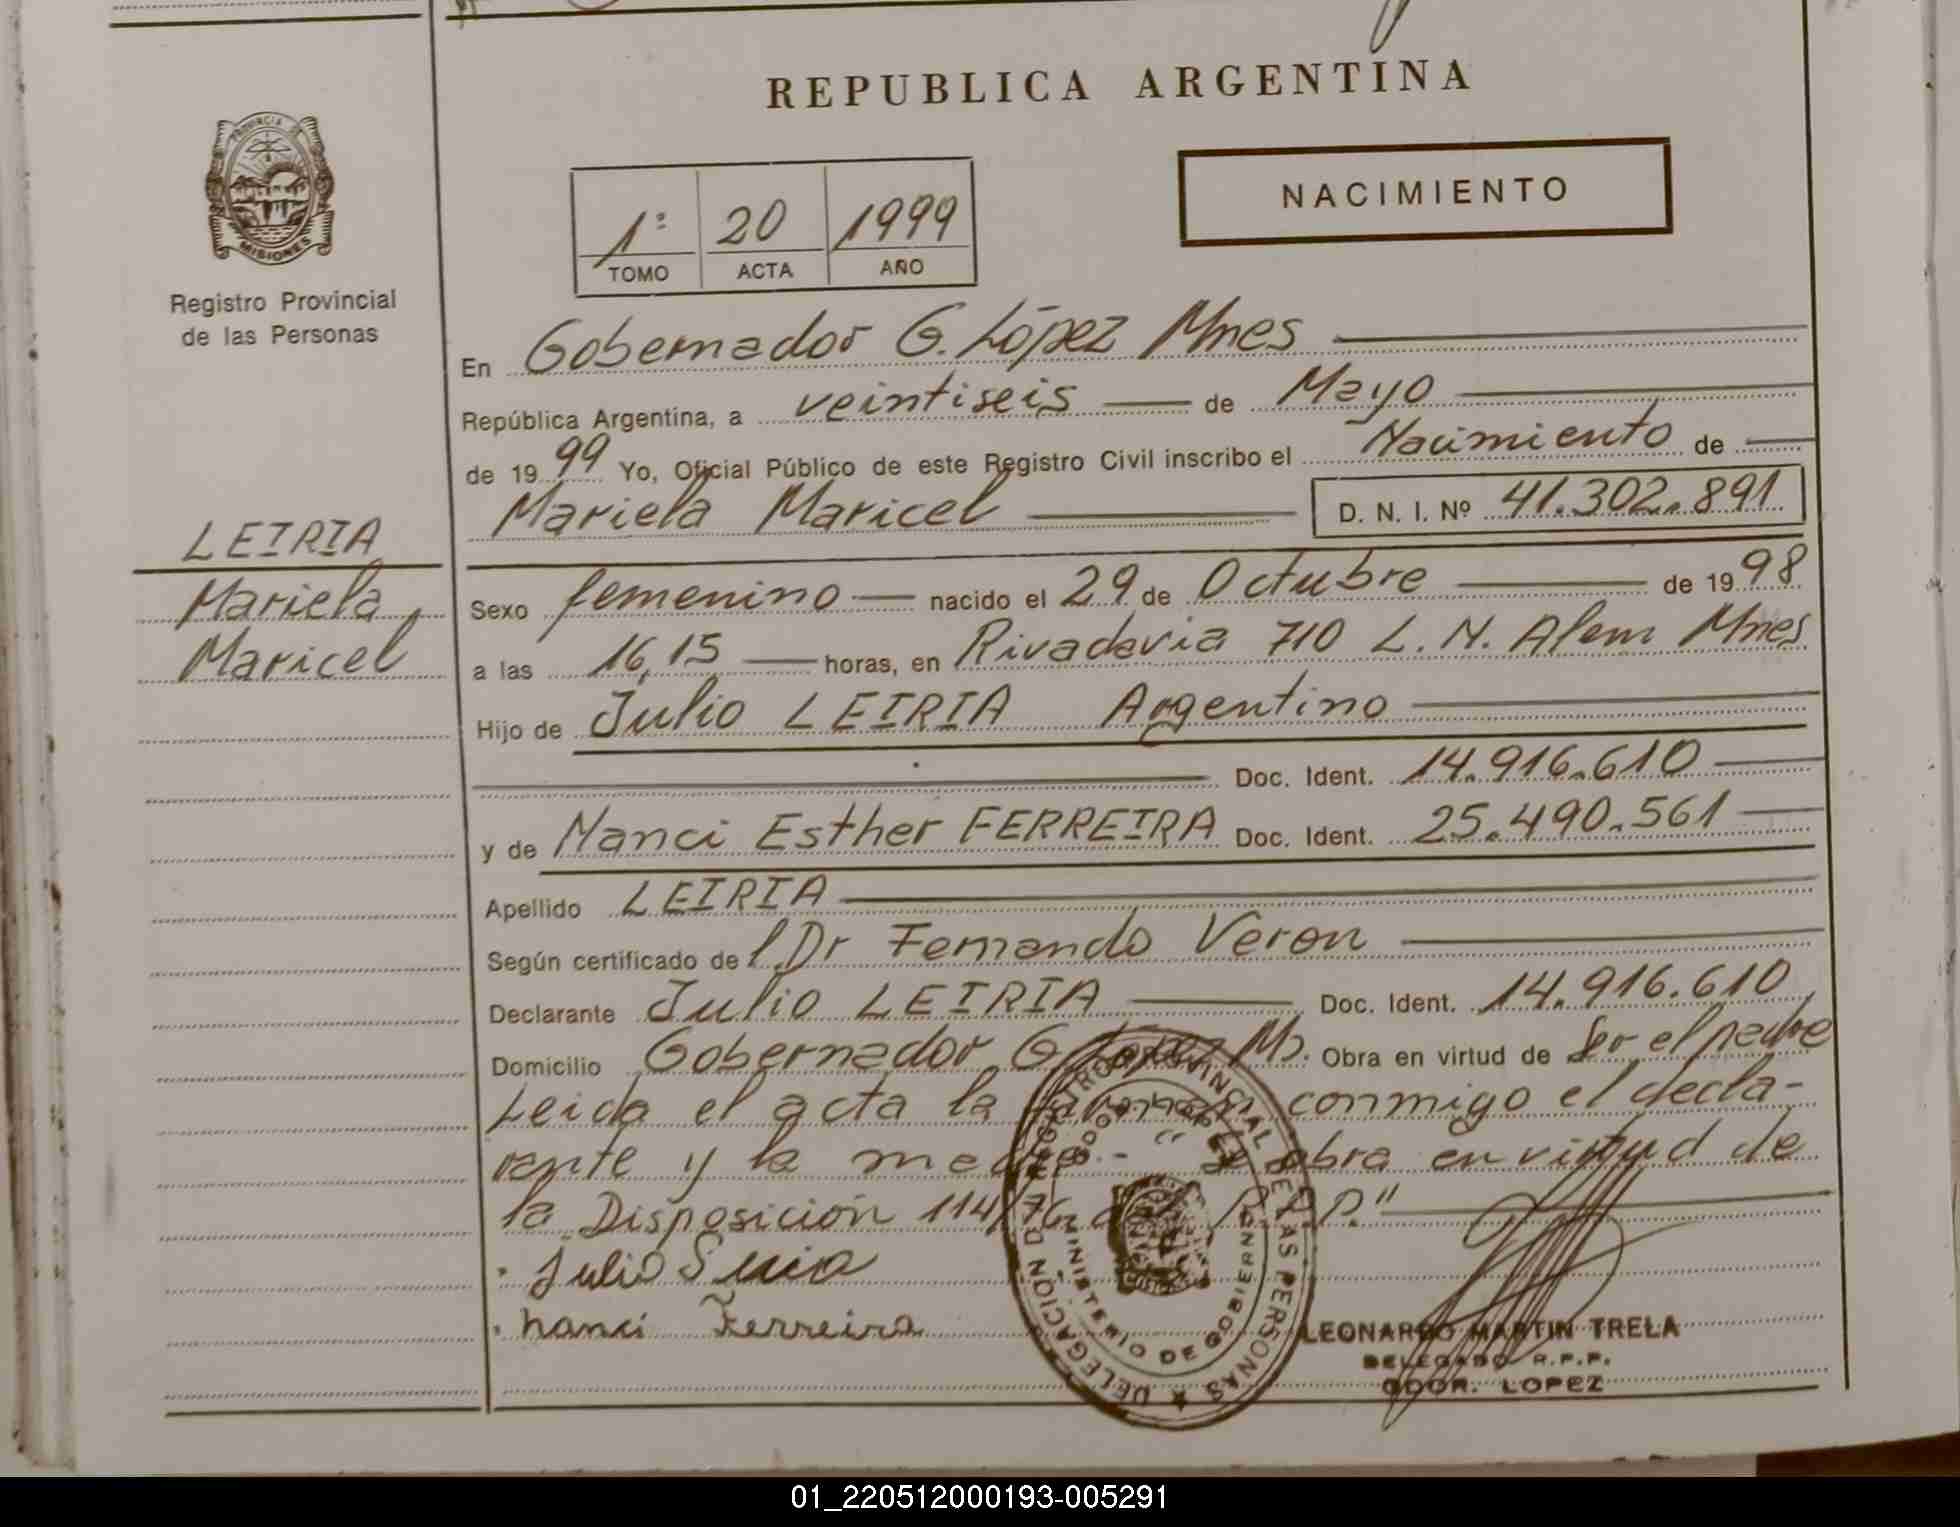 REPUBLICA ARGENTINA
PROVINCIA DE
MISIONES
Registro Provincial
de las Personas
NACIMIENTO
1º 20 1999
TOMO ACTA AÑO
En Gobernador G. López Mnes
República Argentina, a veintiseis de Mayo
de 1999 Yo, Oficial Público de este Registro Civil inscribo el Nacimiento de
Mariela Maricel D. N. I. Nº 41.302.891
LEIRIA
Mariela
Maricel
Sexo femenino nacido el 29 de Octubre de 1998
a las 16,15 horas, en Rivadavia 710 L. N. Alem Mnes
Hijo de Julio LEIRIA Argentino
Doc. Ident. 14.916.610
y de Nanci Esther FERREIRA Doc. Ident. 25.490.561
Apellido LEIRIA
Según certificado del Dr Fernando Veron
Declarante Julio LEIRIA Doc. Ident. 14.916.610
Domicilio Gobernador G. López Ms. Obra en virtud de Ser el padre
Leida el acta la firman conmigo el decla-
rante y la madre.- "Se obra en virtud de
la Disposición 114/76 del R.P.P."
Julio
Nanci Ferreira
REGISTRO PROVINCIAL DE LAS PERSONAS
DELEGACION DE
GDOR. LOPEZ
MINISTERIO DE GOBIERNO
LEONARDO MARTIN TRELA
DELEGADO R.P.P.
GDOR. LOPEZ
01_220512000193-005291